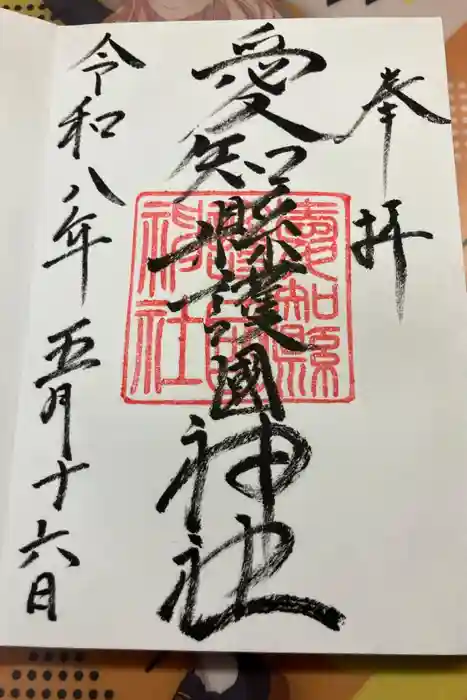 奉拝
愛知縣護國神社
愛知縣護國神社
令和八年五月十六日